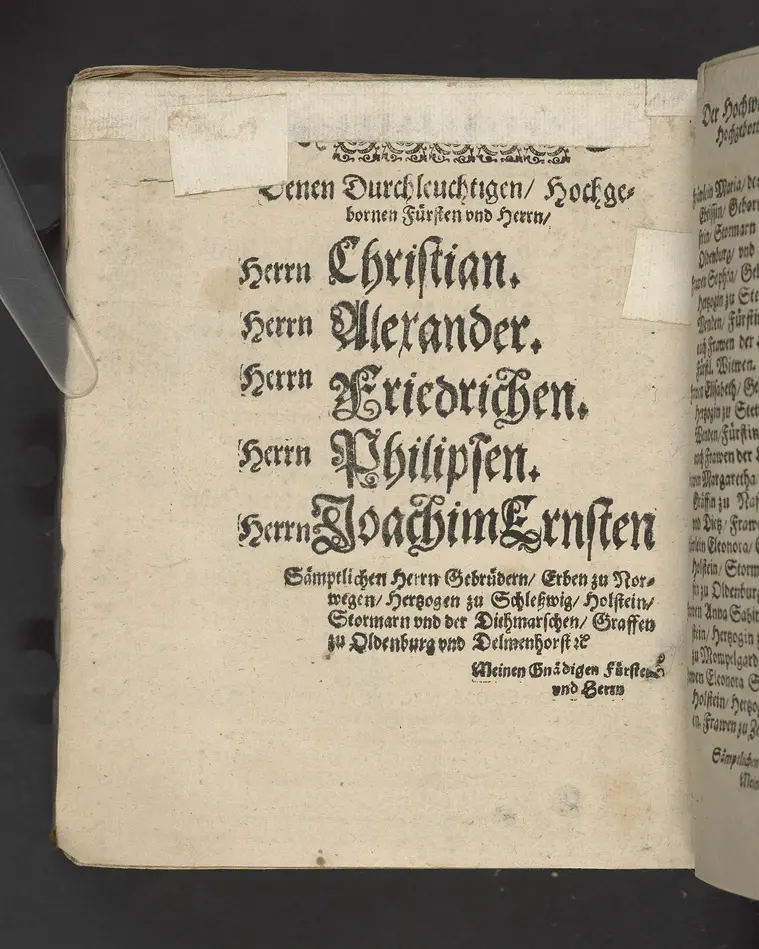 Denen Durchleuchtigen/ Hochge-
bornen Fürsten vnd Herrn/
Herrn Christian.
Herrn Alexander.
Herrn Friedrichen.
Herrn Philipsen.
Herrn Joachim Ernsten
Sämptlichen Herrn Gebrüdern/ Erben zu Nor-
wegen/ Hertzogen zu Schleßwig/ Holstein/
Stormarn vnd der Diehmarschen/ Graffen
zu Oldenburg vnd Delmenhorst ꝛc
Meinen Gnädigen Fürsten
vnd Herrn
Der Hochw
Hochgeborn
Maria/
Gebor
Stormarn
Oldenburg/ vnd
Sophia/ Ge
Hertzogin zu Ste
Wenden/ Fürsti
Frawen der
Fürstl. Witwen.
Elisabeth/ Ge
Hertzogin zu Stet
Wenden/ Fürstin
Frawen der
Margaretha
Gräffin zu Nas
Dietz/ Fraw
Eleonora/
Holstein/ Storm
zu Oldenbur
Anna Sabi
Hertzogin
zu Mompelgard
Eleonora S
Holstein/ Hertzo
Frawen zu
Sämptlichen